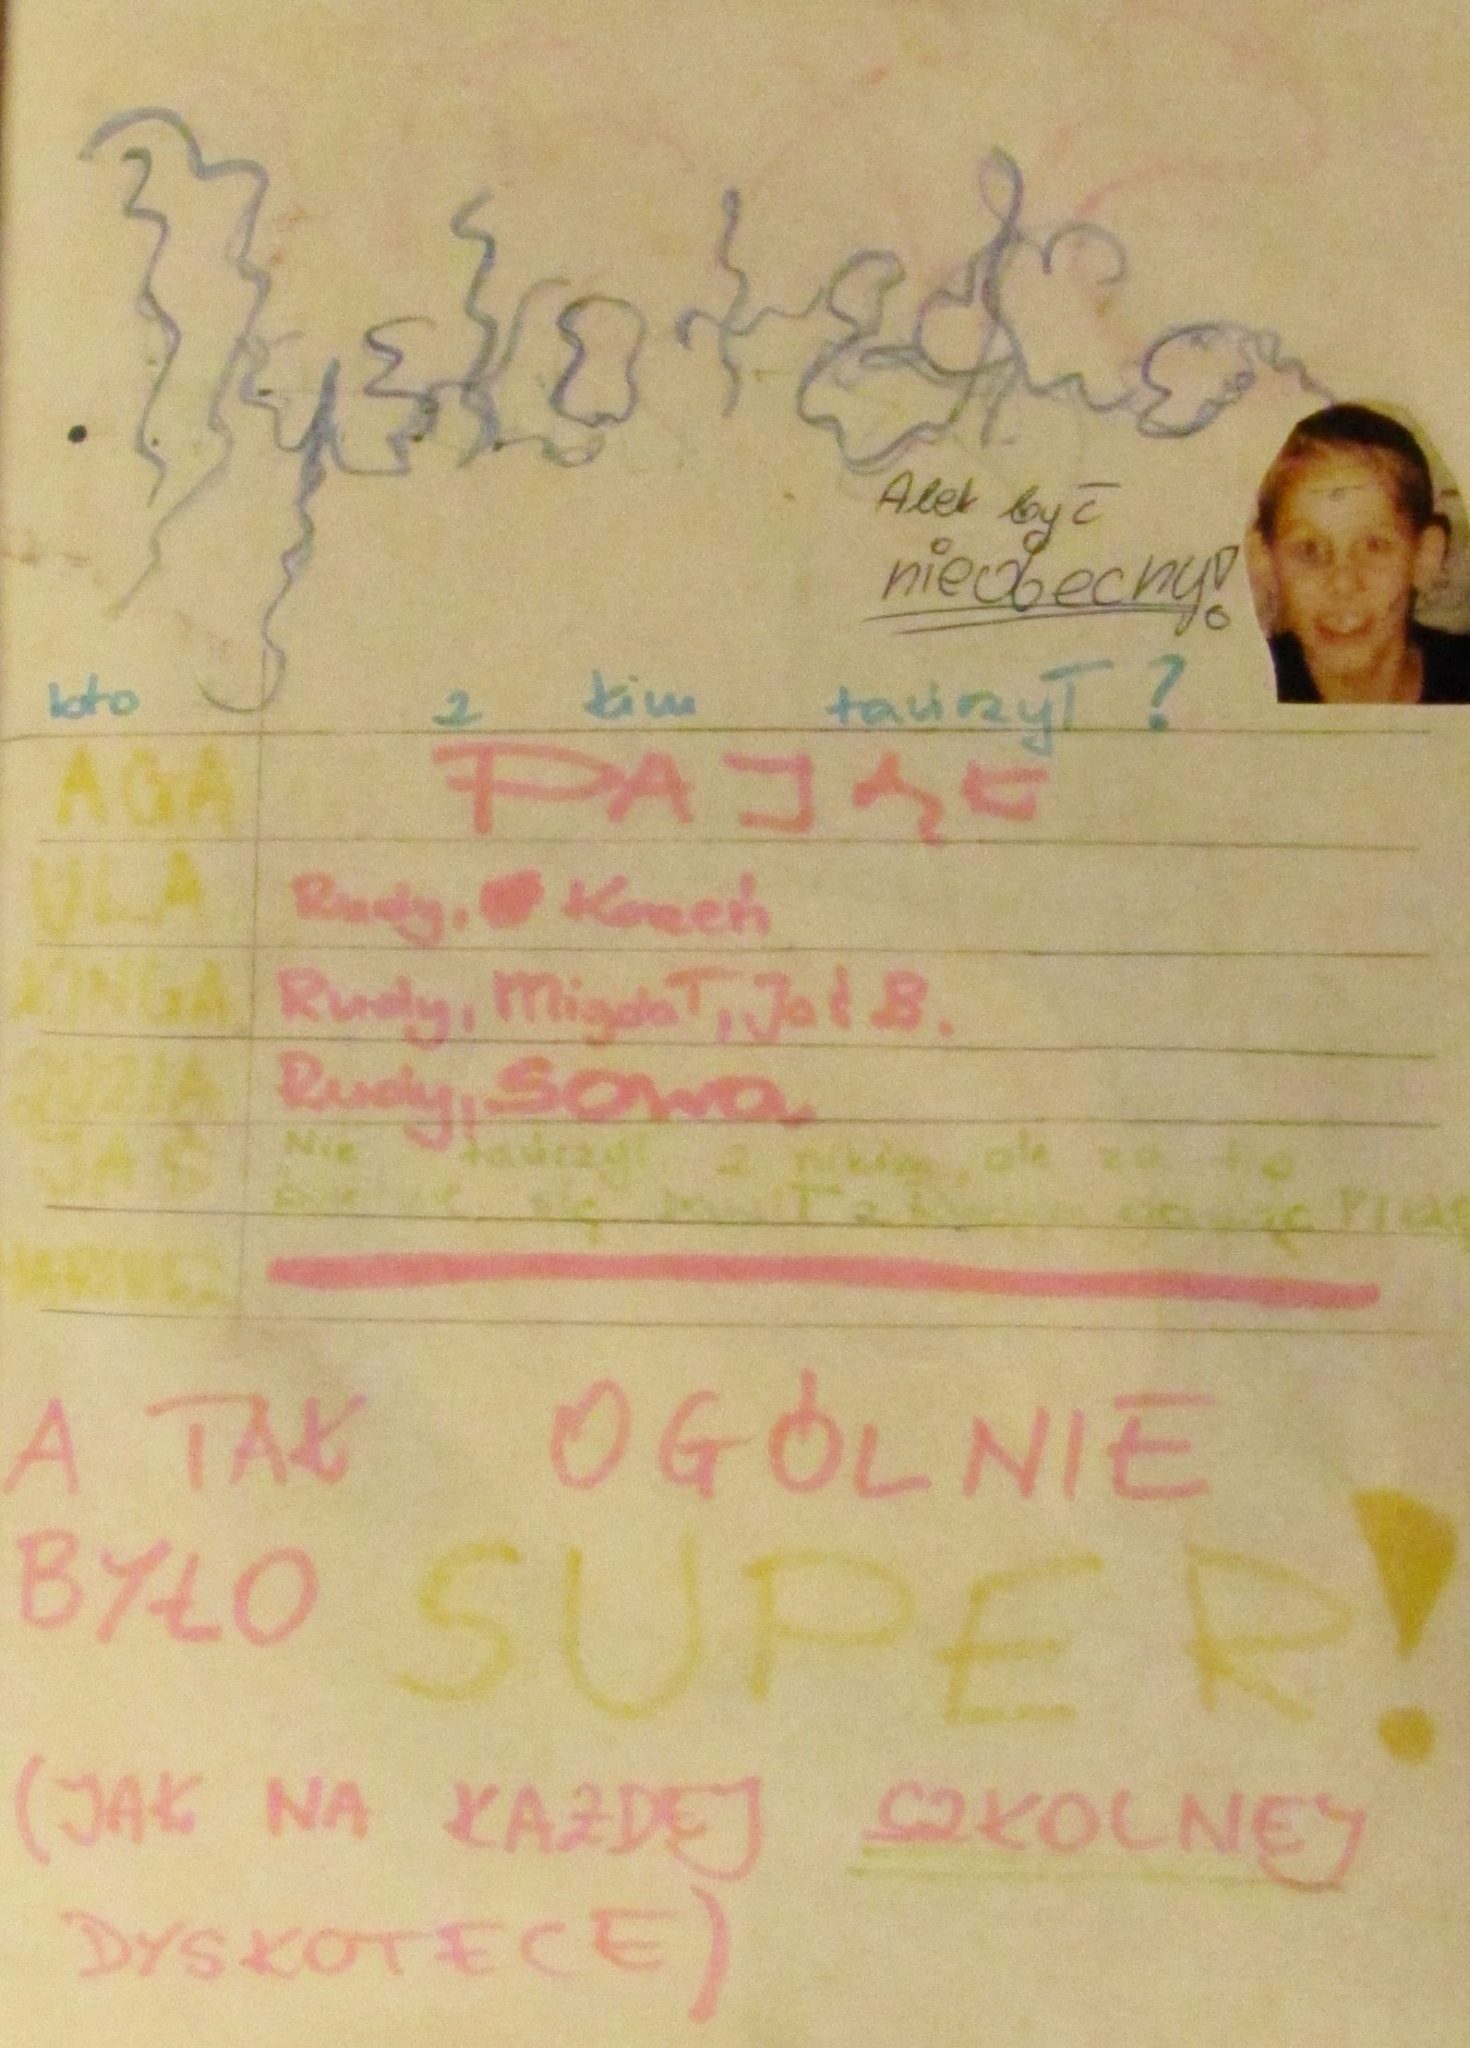 Dyskoteka
Alek być
nieobecny!
kto z kim tańczył?
AGA PAJĄC
ULA Rudy, Korzeń
KINGA Rudy, Migdał, Jaś B.
ZUZIA Rudy, Sowa
JAŚ Nie tańczył z nikim, ale za to
się z
A TAK OGÓLNIE
BYŁO SUPER!
(JAK NA KAŻDEJ SZKOLNEJ
DYSKOTECE)